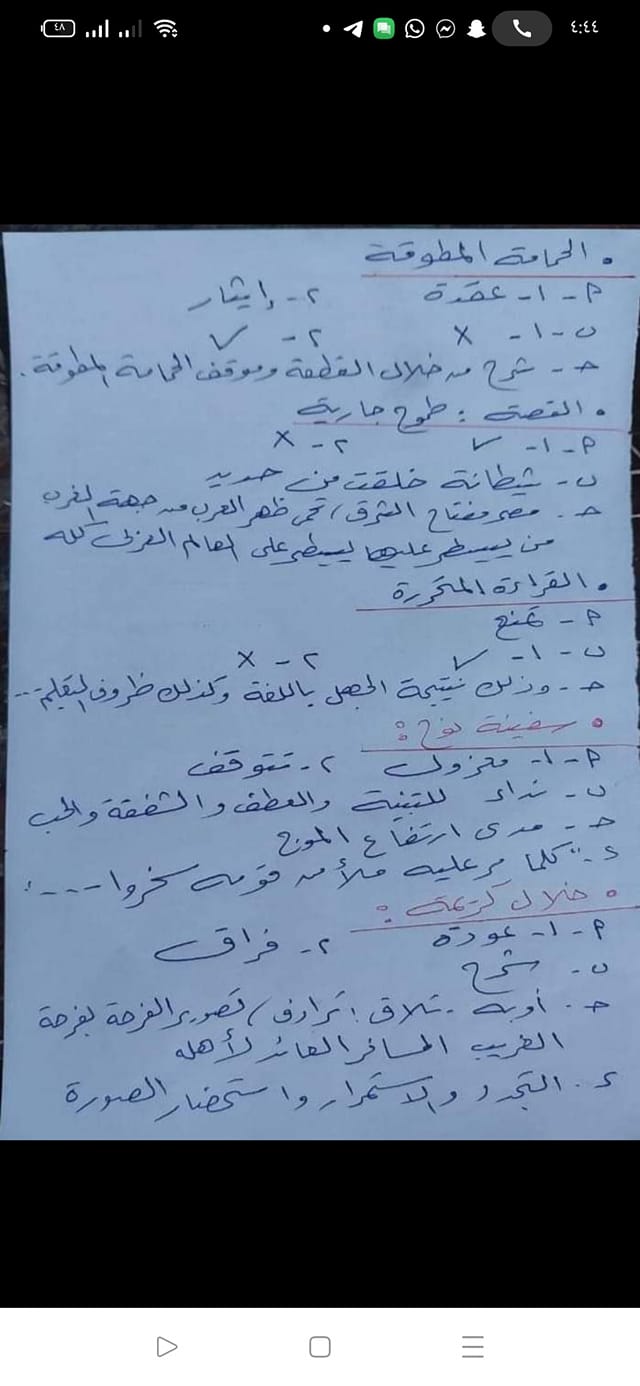 ٤:٤٤
٤٨
• الحمامة المطوقة
P - ١ - عقدة ٢ - إيثار
ب - ١ - × ٢ - ✓
حـ - شرح من خلال القطعة وموقف الحمامة المطوقة.
• القصة : طموح جارية
P - ١ - ✓ ٢ - ×
ب - شيطانة خلقت من حديد
حـ . مصر مفتاح الشرق / تحمى ظهر العرب من جهة الغرب
من يسيطر عليها يسيطر على العالم العربى كله
• القراءة المتحررة
P - تمنع
ب - ١ - ✓ ٢ - ×
حـ - وذلك نتيجة الجهل باللغة وكذلك ظروف التعليم ...
• سفينة نوح :
P - ١ - معزول ٢ - تتوقف
ب - نداء للتنبيه والعطف والشفقة والحب
حـ - مدى ارتفاع الموج
د - "كلما مر عليه ملأ من قومه سخروا ----"
• خلال كريمة :
P - ١ - عودة ٢ - فراق
ب - شرح
حـ . أوبة - تلاق : ترادف / تصوير الفرحة بفرحة
الغريب المسافر العائد لأهله
د . التجدد والاستمرار واستحضار الصورة